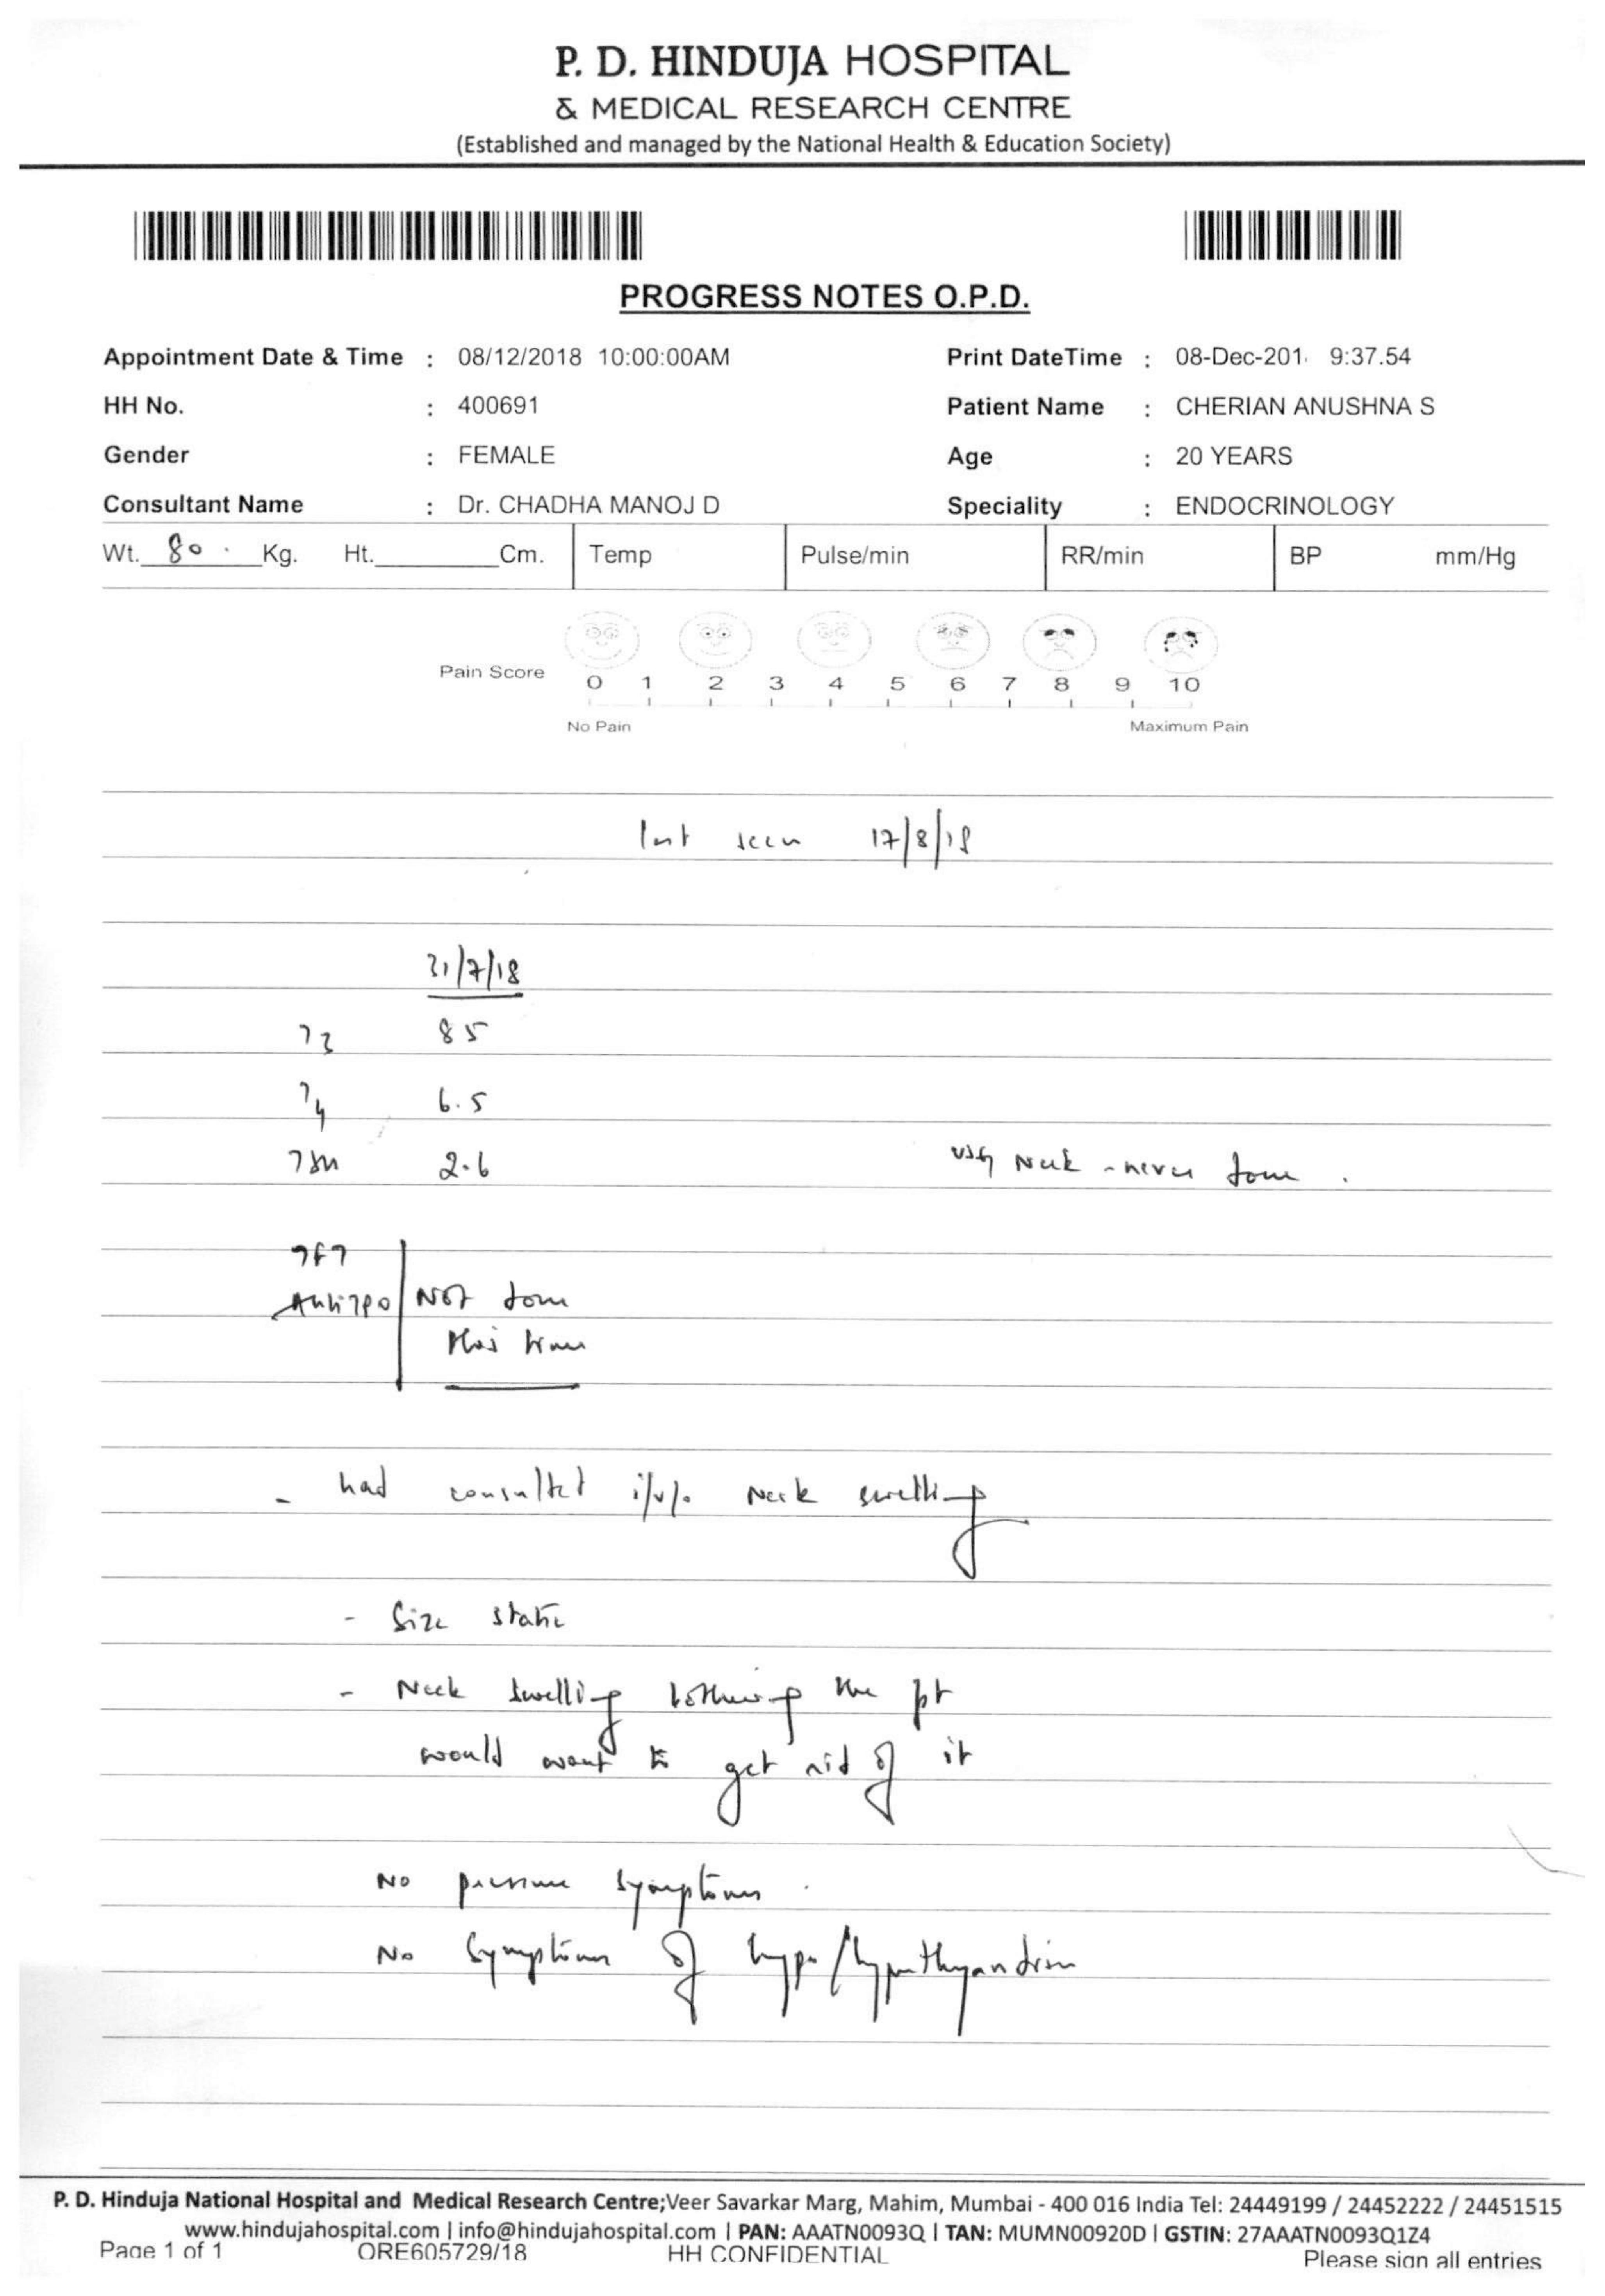 P. D. HINDUJA HOSPITAL
& MEDICAL RESEARCH CENTRE
(Established and managed by the National Health & Education Society)
PROGRESS NOTES O.P.D.
Appointment Date & Time : 08/12/2018 10:00:00AM Print DateTime : 08-Dec-201 9:37.54
HH No. : 400691 Patient Name : CHERIAN ANUSHNA S
Gender : FEMALE Age : 20 YEARS
Consultant Name : Dr. CHADHA MANOJ D Speciality : ENDOCRINOLOGY
Wt. 80 Kg. Ht. Cm. Temp Pulse/min RR/min BP mm/Hg
Pain Score 0 1 2 3 4 5 6 7 8 9 10
No Pain Maximum Pain
last seen 17/8/18
31/7/18
T3 85
T4 6.5
TSH 2.6 USG Neck - never done .
TFT
AntiTPO NOT done
this time
- had consulted i/v/o Neck swelling
- Size static
- Neck swelling bothering the pt
would want to get rid of it
No pressure symptoms .
No symptoms of hypo/hyperthyroidism
P. D. Hinduja National Hospital and Medical Research Centre;Veer Savarkar Marg, Mahim, Mumbai - 400 016 India Tel: 24449199 / 24452222 / 24451515
www.hindujahospital.com | info@hindujahospital.com | PAN: AAATN0093Q | TAN: MUMN00920D | GSTIN: 27AAATN0093Q1Z4
Page 1 of 1 ORE605729/18 HH CONFIDENTIAL Please sign all entries